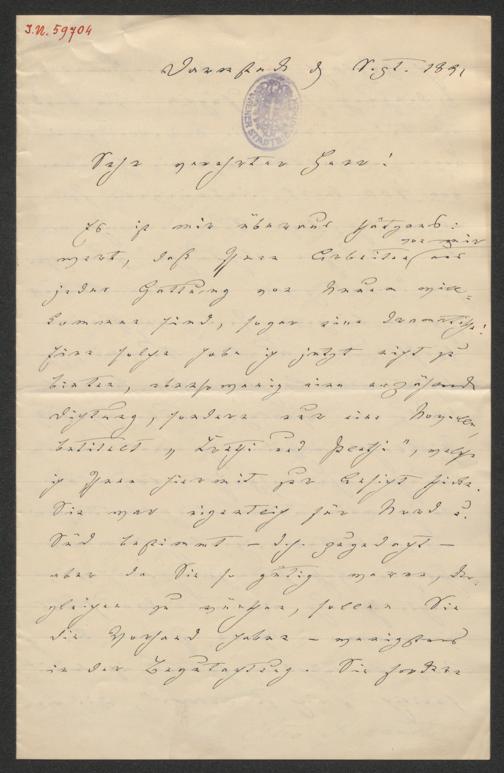 I.N. 59704
Darmstadt d Sept. 1891
Sehr verehrter Herr!
Es ist mir überaus schätzens-
wert, daß Ihnen Arbeiten von mir aus
jeder Gattung von Neuem will-
kommen sind, sogar eine dramatische!
Eine solche habe ich jetzt nicht zu
bieten, ebensowenig eine erzählende
Dichtung, sondern nur eine Novelle,
betitelt „Krethi und Plethi", welche
ich Ihnen hiermit zur Ansicht sende.
Sie war eigentlich für Nord u.
Süd bestimmt – d.h. zugedacht –
aber da Sie so gütig waren, der-
gleichen zu wünschen, sollen Sie
die Vorhand haben – wenigstens
in der Begutachtung. Sie fordern